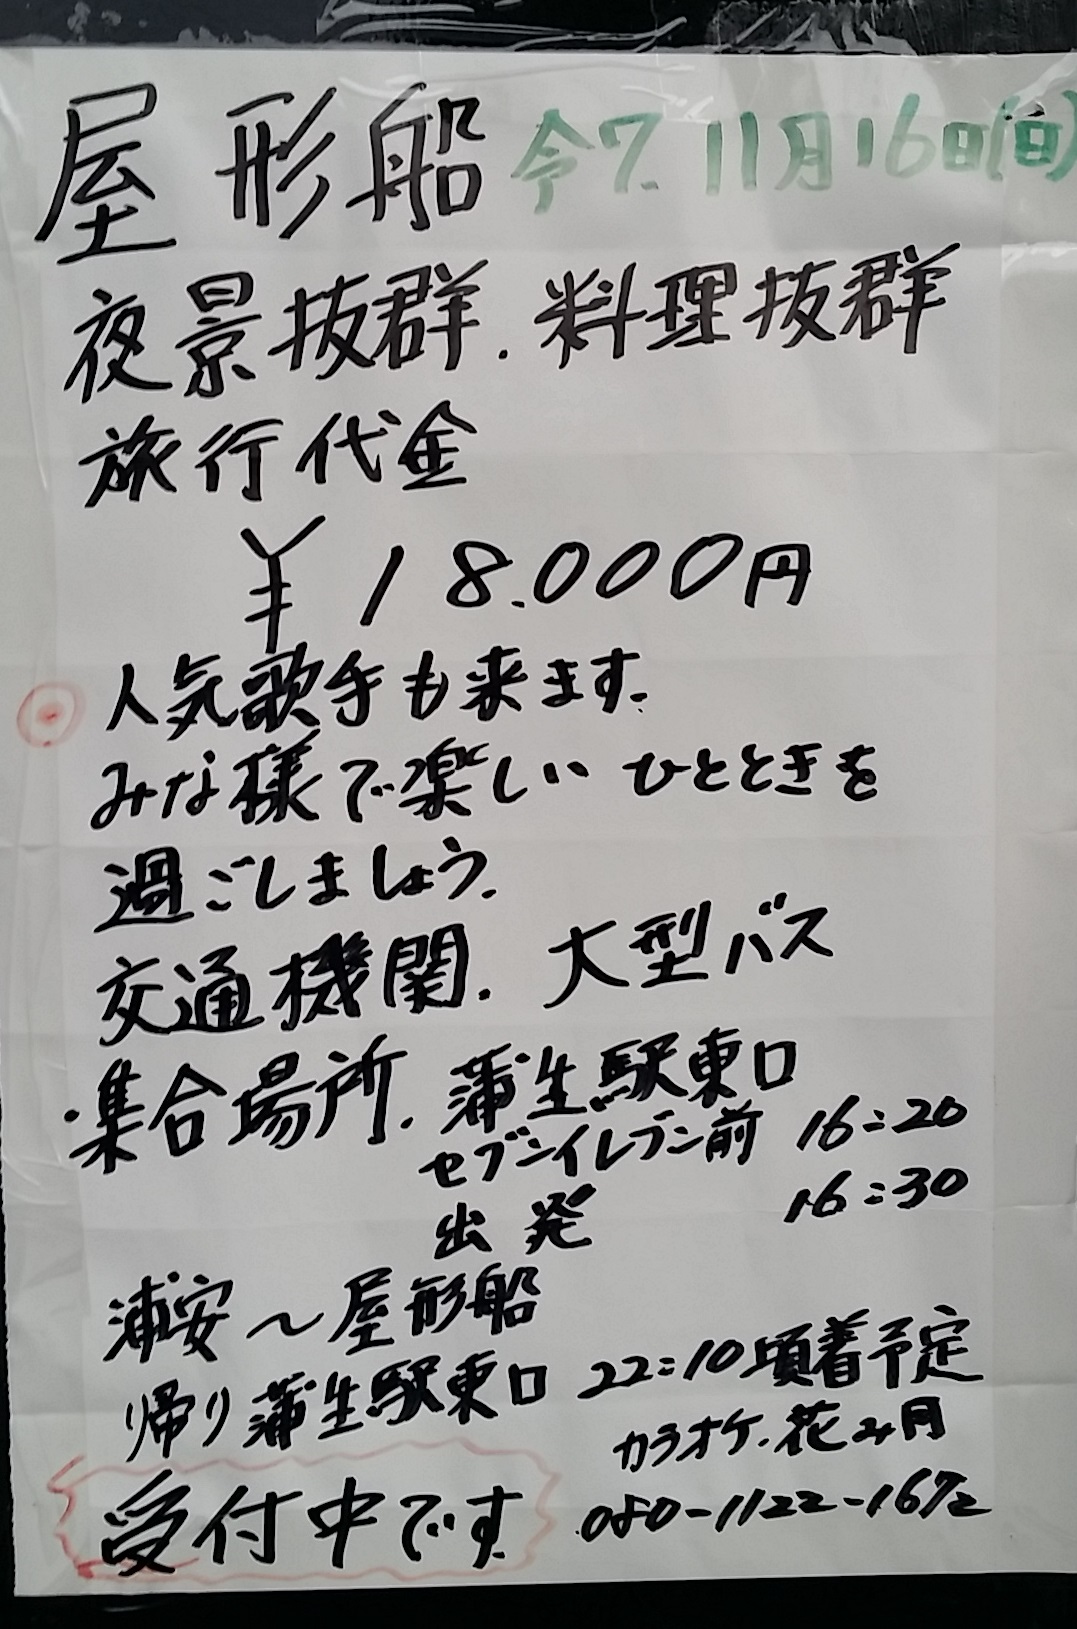 屋形船 令7.11月16日(日)
夜景抜群.料理抜群
旅行代金
¥18.000円
人気歌手も来ます.
みな様で楽しいひとときを
過ごしましょう.
交通機関.大型バス
・集合場所.蒲生駅東口
セブンイレブン前 16:20
出発 16:30
浦安〜屋形船
帰り蒲生駅東口 22:10頃着予定
カラオケ.花み月
受付中です 080-1122-1672